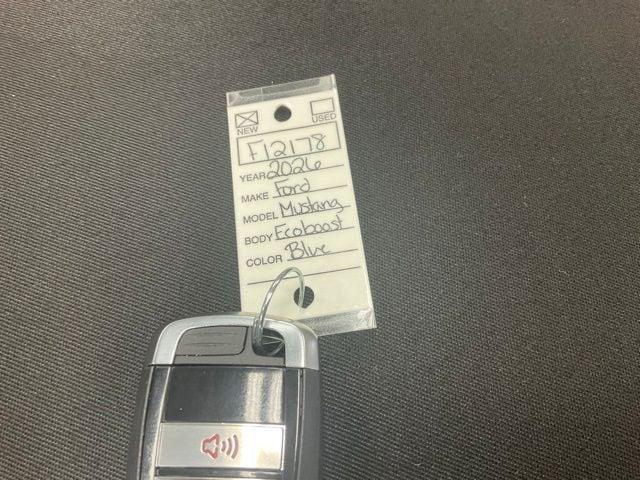 NEW USED
F12178
YEAR 2026
MAKE Ford
MODEL Mustang
BODY Ecoboost
COLOR Blue